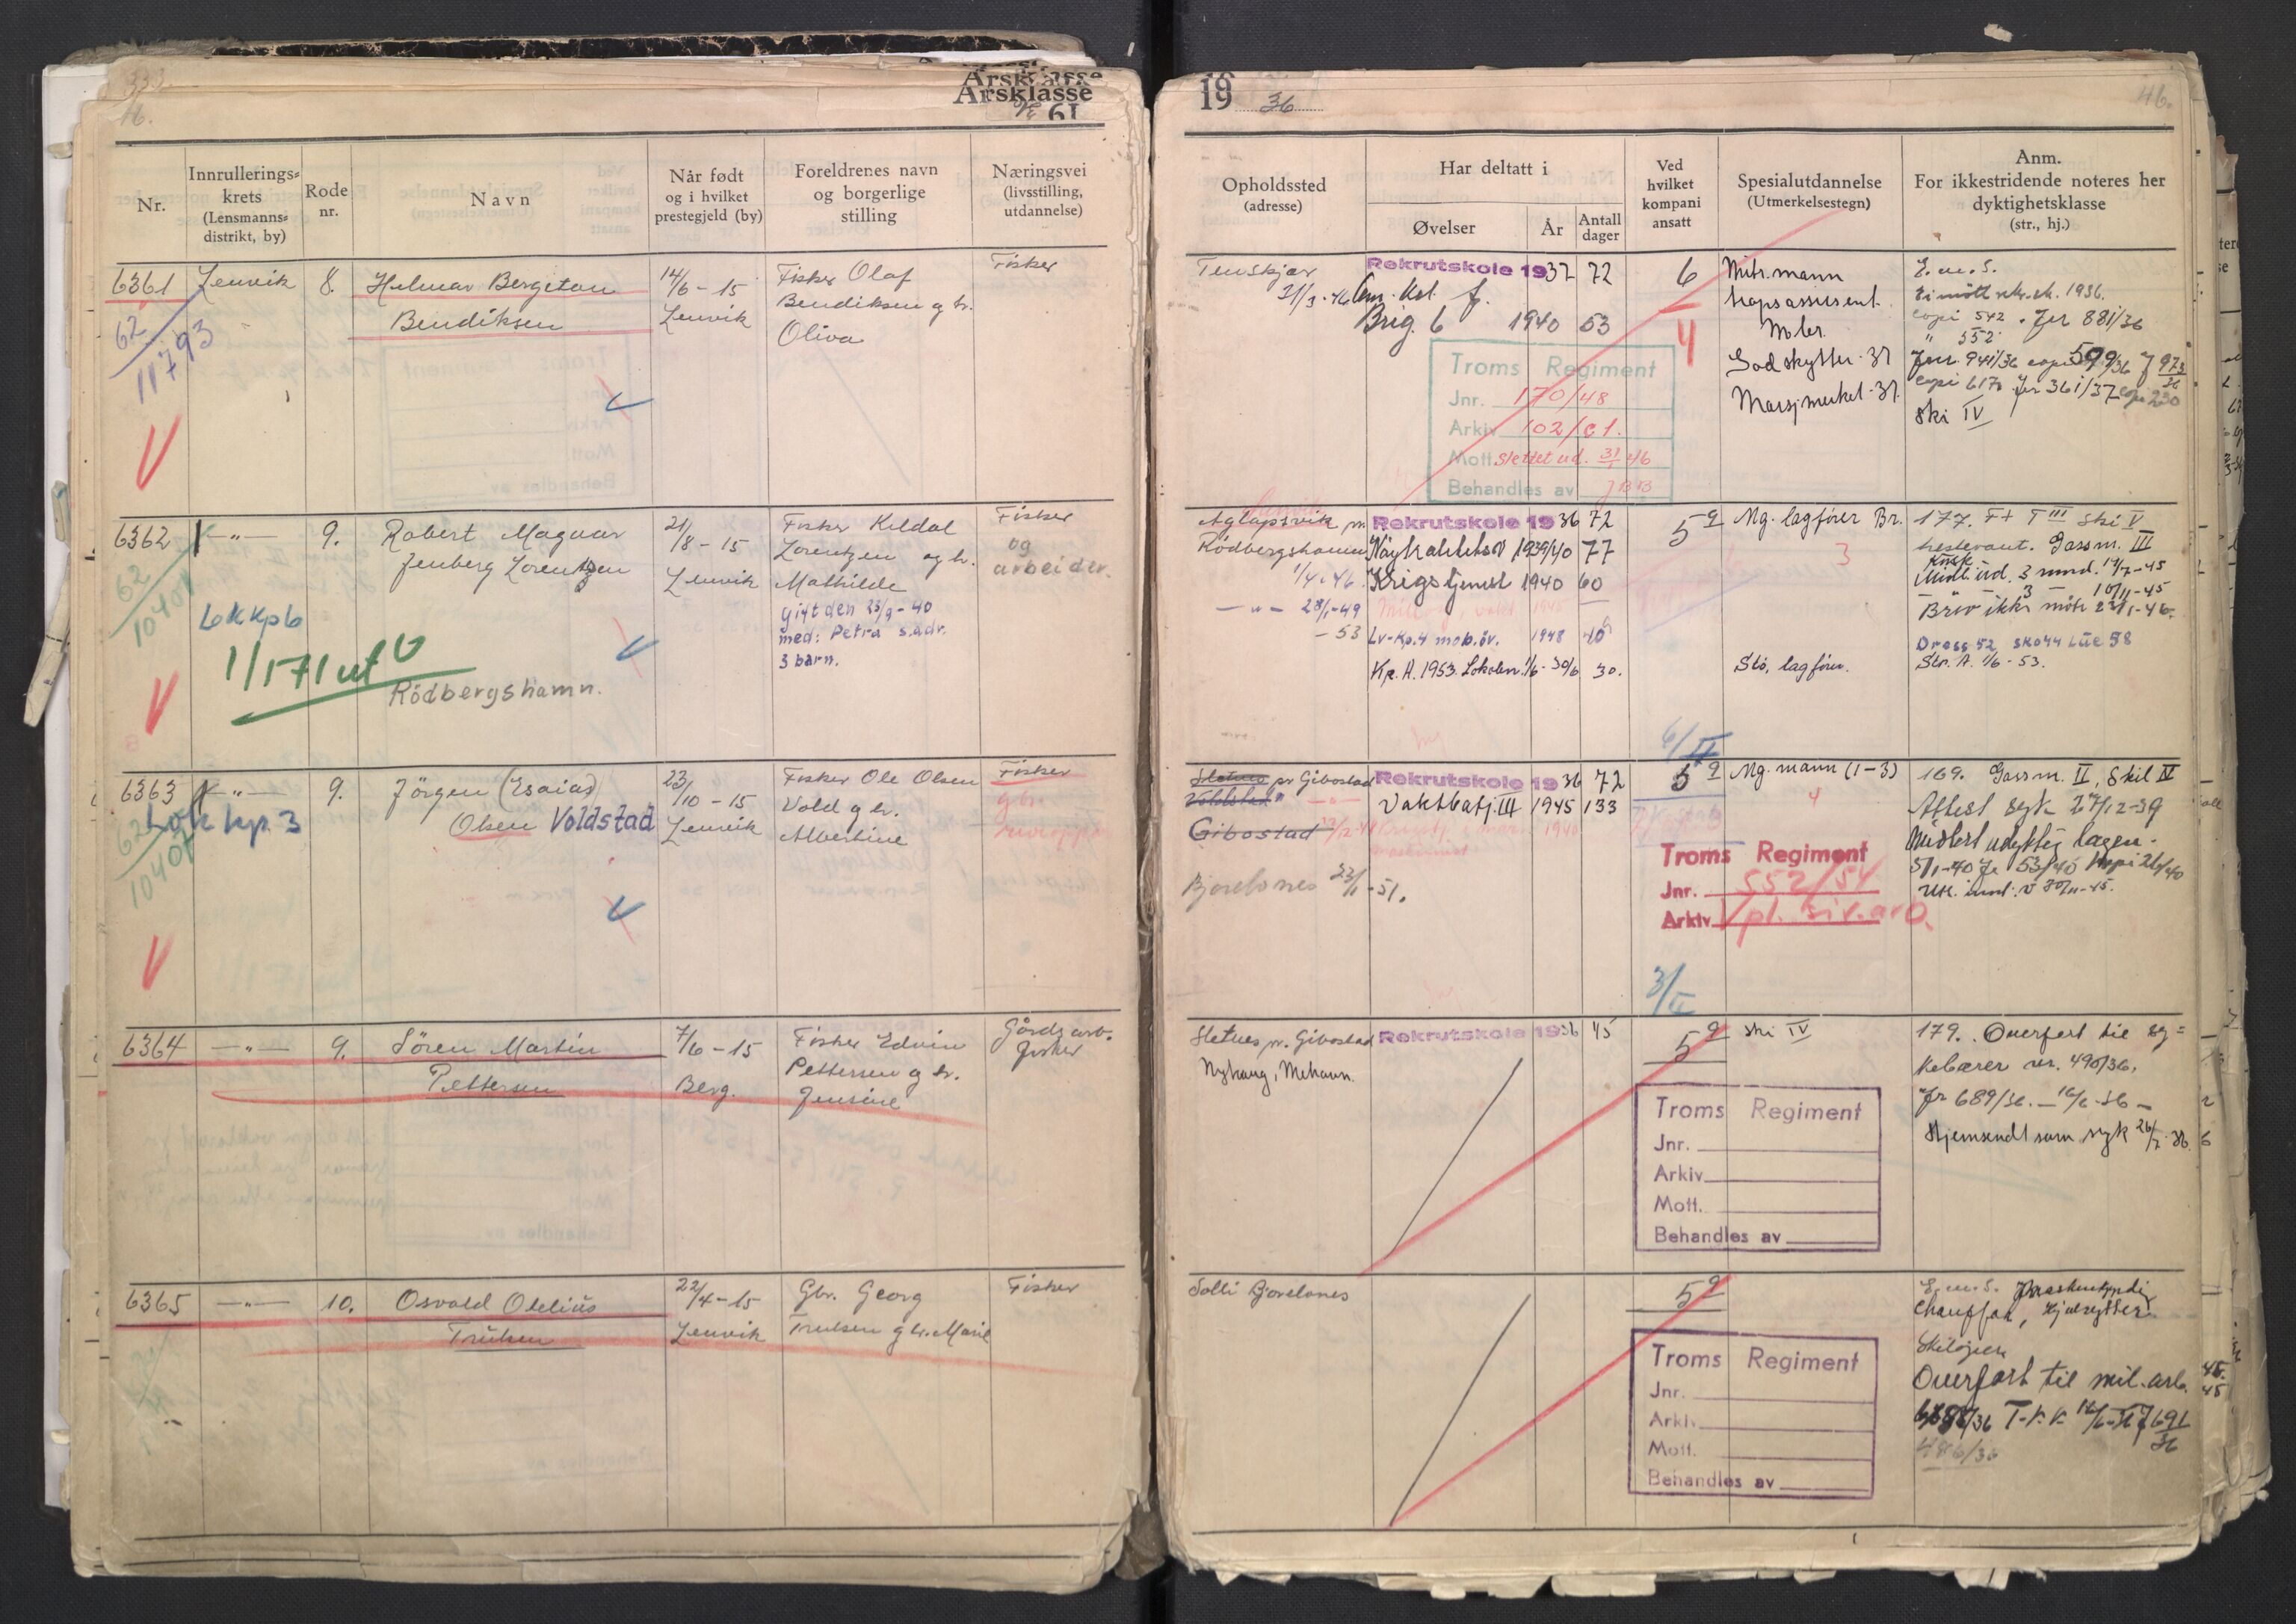 Årsklasse
16.
Nr.
Innrullerings-
krets
(Lensmanns-
distrikt, by)
Rode
nr.
Navn
Når født
og i hvilket
prestegjeld (by)
Foreldrenes navn
og borgerlige
stilling
Næringsvei
(livsstilling,
utdannelse)
6361 Lenvik 8. Helmar Bergeton
Bendiksen
14/6 - 15
Lenvik
Fisker Olaf
Bendiksen g hr.
Oliva
Fisker
62
11793
6362 —"— 9. Robert Magnar
Jenberg Lorentzen
21/8 - 15
Lenvik
Fisker Kildal
Lorentzen og hr.
Mathilde
gift den 25/9 - 40
med: Petra s.adr.
3 barn.
Fisker
og
arbeider.
62
10401
Lok Kp 6
Rödbergshamn.
6363 —"— 9. Jörgen (Esaias)
Olsen Voldstad
23/10 - 15
Lenvik
Fisker Ole Olsen
Vold g hr.
Albertine
Fisker
gbr.
62
10407
Lok kp. 3
6364 —"— 9. Sören Martin
Pettersen
7/6 - 15
Berg.
Fisker Edvin
Pettersen g hr.
Jensine
Gårdsarb.
fisker
6365 —"— 10. Osvald Olelius
Trulsen
22/4 - 15
Lenvik
Gbr. Georg
Trulsen g hr. Marie
Fisker
19 36
46.
Opholdssted
(adresse)
Har deltatt i
Øvelser
År
Antall
dager
Ved
hvilket
kompani
ansatt
Spesialutdannelse
(Utmerkelsestegn)
Anm.
For ikkestridende noteres her
dyktighetsklasse
(str., hj.)
Tenskjær
21/3-46
Rekrutskole 1937 72
Brig. 6 1940 53
6
4
Mitr. mann
Godskytter - 37
Marsjmerket - 37.
E.m.S.
Ei mött rekr.sk. 1936.
copi 542. Jnr 881/36
" 552
Jnr 941/36 copi 599/36 J 973/36
copi 617. Jnr 361/37 copi 230
Ski IV
Troms Regiment
Jnr. 170/48
Arkiv 102/C1.
Mott. Slettet ud. 31/1 46
Behandles av
Aglapsvik pr.
Rödbergshamn
1/4 - 46.
—"— 28/1-49
- 53
Rekrutskole 1936 72
Nöytralitetsv 1939/40 77
Krigstjenest 1940 60
Lv-Kp.4 mob.öv. 1948 40
Kp. H. 1953. Lokalöv. 1/6 - 30/6 30.
5
Mg. lagförer Br.
3
Stö, lagförer.
177. F+ T III Ski V
hestevant. Gassm. III
Midl. ud. 3 mnd.
Brev ikke möte
Dress 52 sko 44 Lue 58
Str. A. 1/6 - 53.
6/II
Sletnes pr Gibostad
Voldstad
Gibostad
Bjorelvnes 23/1 - 51.
Rekrutskole 1936 72
Vaktbatj. III 1945 133
5
Mg. mann (1-3)
4
169. Gassm. II, Ski IV
Attest syk 27/12-39
Midlert udyktig lagen.
5/1-40 Jr 53/40 kopi 26/40
Troms Regiment
Jnr. 552/54
Arkiv pl. siv. arb.
3/II
Sletnes pr. Gibostad
Nyhaug, Mehavn.
Rekrutskole 1936 45
5
Ski IV
179. Overfört til sy=
kebærer nr. 490/36.
Jr 689/36. — 16/6 - 36 —
Hjemsendt som syk 26/7 - 36
Troms Regiment
Jnr.
Arkiv
Mott.
Behandles av
Solli Bjorelvnes
5
E.m.S.
Chauffør, Hjulrytter.
Skilöper
Overfört til mil. arb.
486/36
Troms Regiment
Jnr.
Arkiv
Mott.
Behandles av